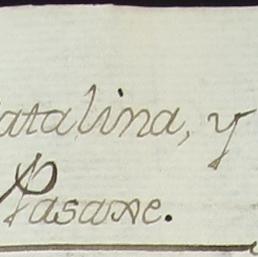 atalina, y
Pasaxe.